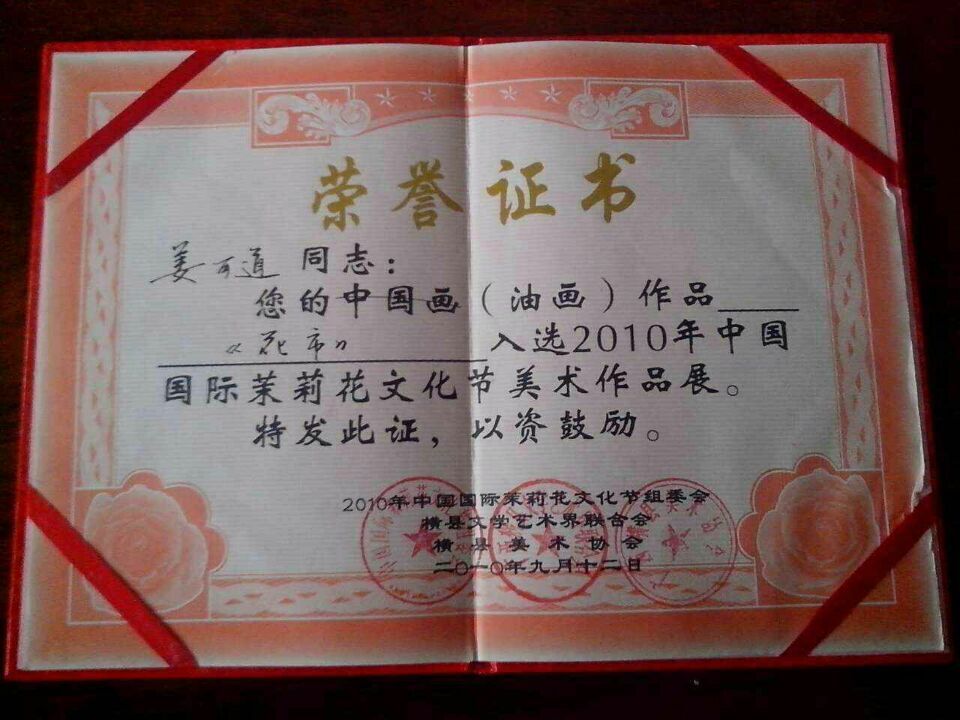 荣誉证书
姜可道 同志：
您的中国画（油画）作品
《花市》 入选2010年中国
国际茉莉花文化节美术作品展。
特发此证，以资鼓励。
2010年中国国际茉莉花文化节组委会
横县文学艺术界联合会
横县美术协会
二〇一〇年九月十二日